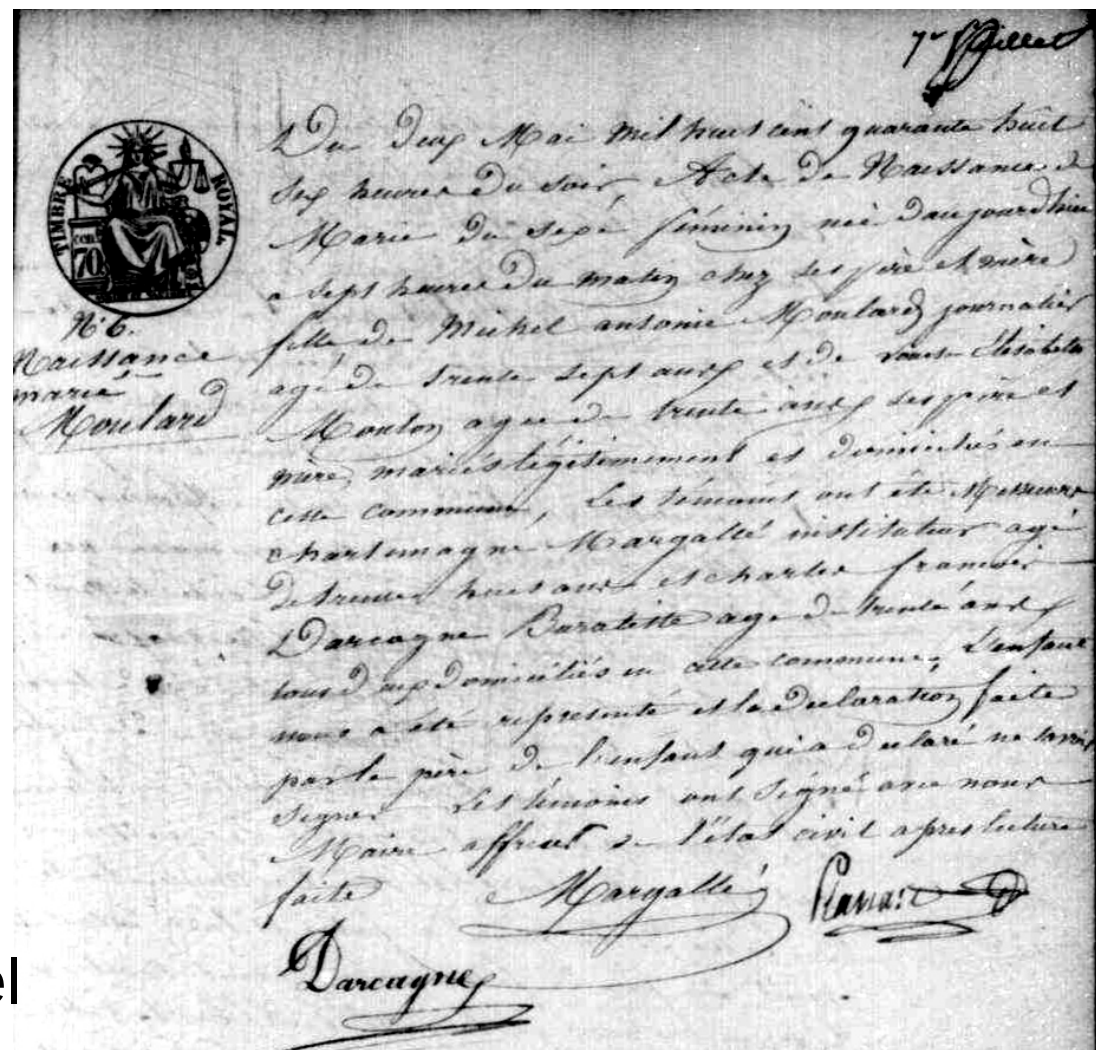 7e feuillet
TIMBRE ROYAL
70
N° 6.
Naissance
marie
Moulard
Du deux Mai mil huit cent quarante huit
six heures du soir, Acte de Naissance de
Marie du sexe féminin née d'aujourdhui
a sept heures du matin chez ses père et mère
fille de Michel antoine Moulard journalier
agé de trente sept ans et de Louise Elisabeth
Moulon agee de trente ans ses père et
mère mariés légitimement et domiciliés en
cette commune, Les témoins ont été Messieurs
charlemagne Margallé instituteur agé
de trente huit ans et charles francois
Darcagne Buratiste age de trente ans
tous deux domiciliés en cette commune, L'enfant
nous a été représenté et la declaration faite
par le père de l'enfant qui a declaré ne savoir
signer Les témoins ont signé avec nous
Maire officier de l'état civil apres lecture
faite Margallé
Darcagne
el